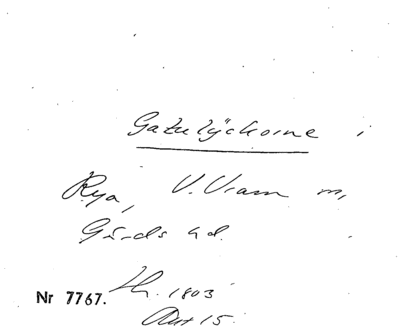 Gatulyckorne i
Rya, V. Vram m,
Gärds hd.
Nr 7767. Lh. 1803
Akt 15.